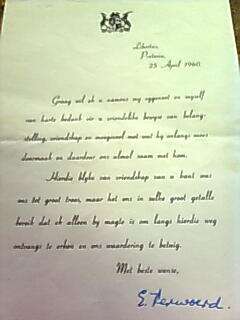 Libertas,
Pretoria,
25 April 1960.
Graag wil ek u namens my eggenoot en myself
van harte bedank vir u vriendelike bewys van belang-
stelling, vriendskap en meegevoel met wat hy onlangs moes
deurmaak en daardeur ons almal saam met hom.
Hierdie blyke van vriendskap van u kant was
ons tot groot troos, maar het ons in sulke groot getalle
bereik dat ek alleen by magte is om langs hierdie weg
ontvangs te erken en ons waardering te betuig.
Met beste wense,
E. Verwoerd.